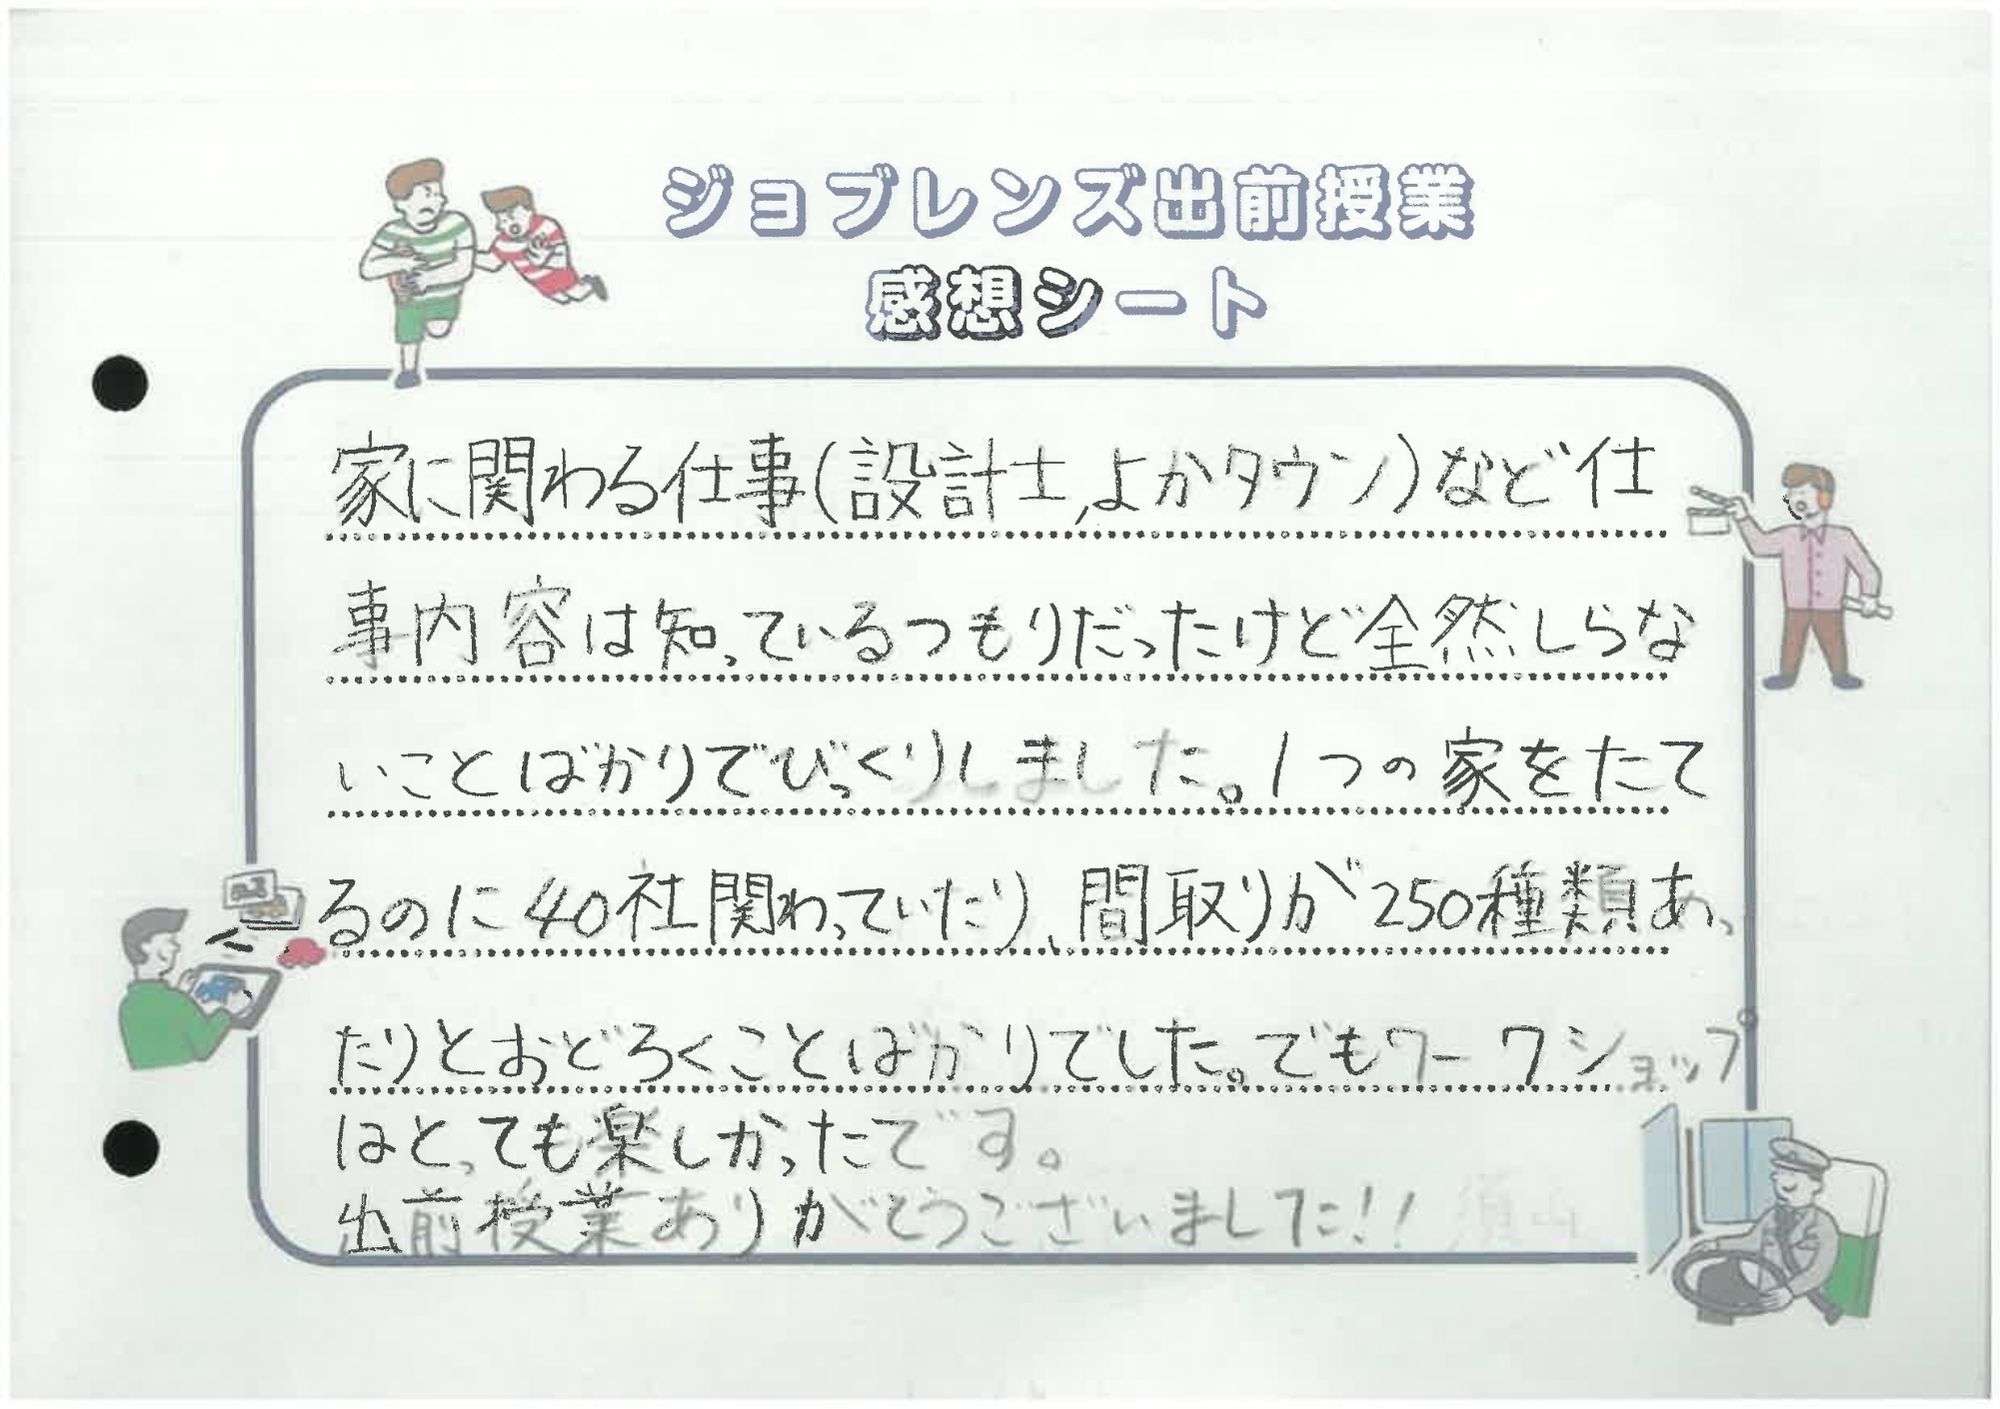 ジョブレンズ出前授業
感想シート
家に関わる仕事(設計士,よかタウン)など仕
事内容は知っているつもりだったけど全然しらな
いことばかりでびっくりしました。1つの家をたて
るのに40社関わっていたり、間取りが250種類あっ
たりとおどろくことばかりでした。でもワークショップ
はとっても楽しかったです。
出前授業ありがとうございました!!